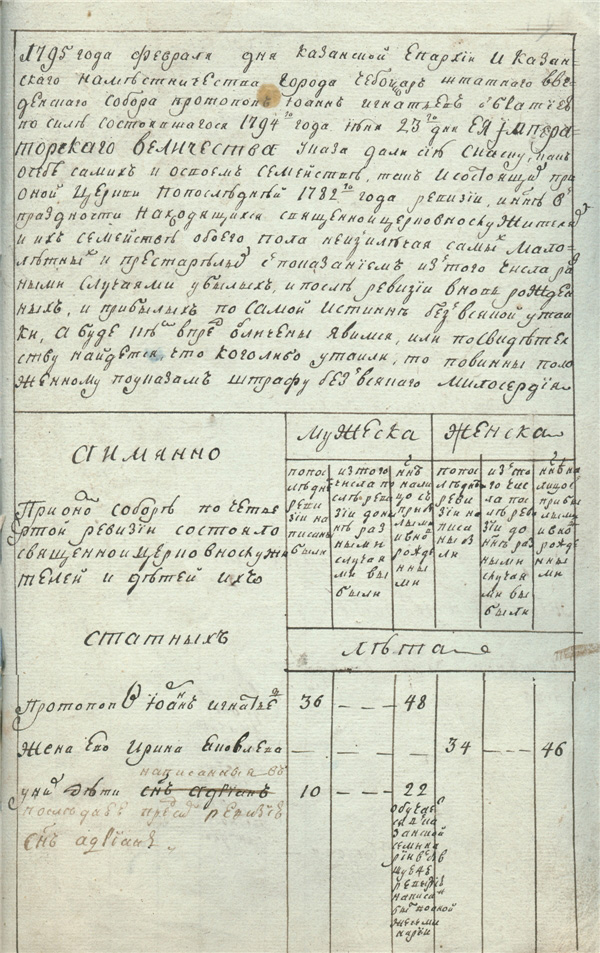 1795 года февраля дня казанской Епархїи И Казан=
скаго намѣстничества города чебоѯаръ штатнаго вве=
денскаго собора протопопъ Їоаннъ игнатьевъ с братїею
по силѣ состоявшагося 1794 го года їюня 23 го дня ЕЯ Їмпера=
торскаго величества указа дали сїю скаску, какъ
о себѣ самихъ и о своемъ семействѣ, такъ и состоящихъ при
оной Церкви попослѣдней 1782 го года ревизїи, и нынѣ в
праздности находящихся священноцерковнослужителей
и ихъ семействъ обоего пола неизключая самыхъ мало=
лѣтныхъ и престарелыхъ с показанїемъ изъ того числа раз
ными случаями убылыхъ, и послѣ ревизїи вновь рожден
ныхъ, и прибылыхъ по самой истиннѣ безъ всякой утай
ки, а буде впредь обличены явимся, или по свидѣтел
ству найдется, что кого либо утаили, то повинны поло
женному по указамъ штрафу безъ всякаго милосердїя
аимянно
мужеска женска
При ономъ соборѣ по четве
ртой ревизїи состояло
священноцерковнослужи
телей и дѣтей ихъ
попо
слѣдне
реви
зїи на
писаны
были
изъ того
числа по
слѣ реви
зїи до ны
нѣ раз
ными
случая
ми вы
были
нынѣ
на лицо
съ при
былыми
и вновь
рожде
нны
ми
попо
слѣдне
реви
зїи на
писа
ны бы
ли
изъ то
го чис
ла по
слѣ рев
изїи до
нынѣ раз
ными
случая
ми вы
были
нынѣ на
лицо съ
прибы
лыми
и вновь
рожде
нны
ми
статныхъ
лѣта
Протопопъ Їоаннъ игнатьевъ 36 — — — 48
Жена Его Ирина Яковлева — — — — — 34 — — — 46
у нихъ дѣти написанныя въ
сынъ адрїанъ 10 — — 22
последне пред ревизїе
сынъ адрїанъ
обучае
тся въ ка
занской
семина
рїи